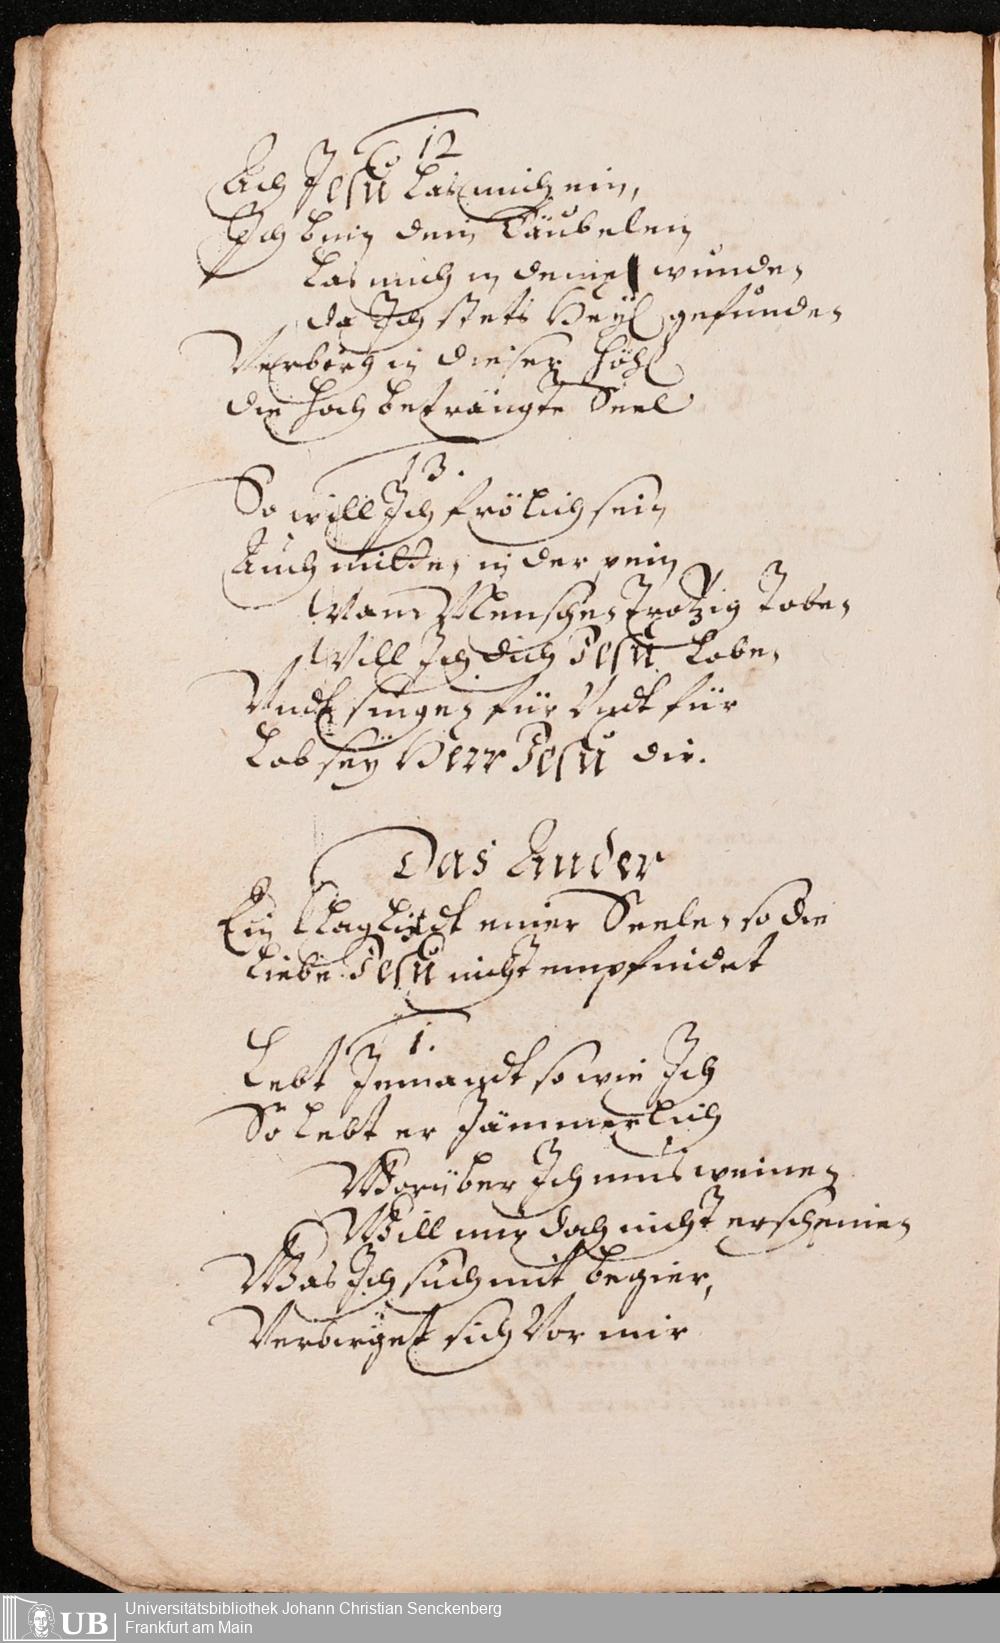 12
Ach Jesu las mich ein,
Ich bin dein Täubelein
Las mich in deine wunden
da Ich stets Heyl gefunden
Verbörg in dieser Höhl
die hoch beträngte Seel
13.
So will Ich frölich sein
Auch mitten in der pein
Wann Menschen trotzig Toben
Will Ich dich Jesu Loben
Vndt singen für Vndt für
Lob sey Herr Jesu dir.
Das Ander
Ein Klaglidt einer Seelen so die
Liebe Jesu nicht empfindet
1.
Lebt Jemandt so wie Ich
So lebt er Jämmerlich
Worüber Ich mus weinen
Will mir doch nicht erscheinen
Was Ich such mit begier,
Verbirget sich Vor mir
UB
Universitätsbibliothek Johann Christian Senckenberg
Frankfurt am Main